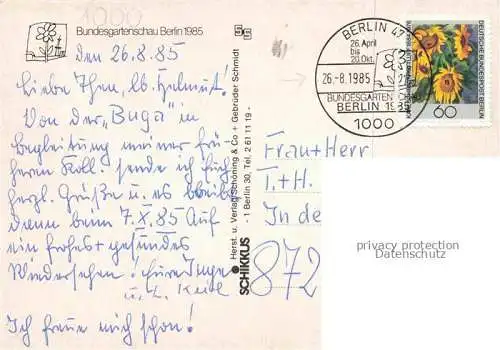 1000
Bundesgartenschau Berlin 1985
den 26.8.85
Liebe Thea, lb. Helmut!
Von der „Buga" in
Begleitung meiner frü-
heren Koll. sende ich Euch
herzl. Grüße u. es bleibt
dann beim 7.X.85 Auf
ein frohes + gesundes
Wiedersehen! Eure Inge
u. L. Keite
Ich freue mich schon!
SCHIKKUS Herst. u. Verlag Schöning & Co + Gebrüder Schmidt
- 1 Berlin 30, Tel. 2 61 11 19 -
BERLIN 47
26. April
bis
20. Okt.
26.-8.1985
BUNDESGARTEN
BERLIN 1985
1000
DEUTSCHE BUNDESPOST BERLIN
60
Frau + Herr
T. + H.
In de
872
privacy protection
Datenschutz